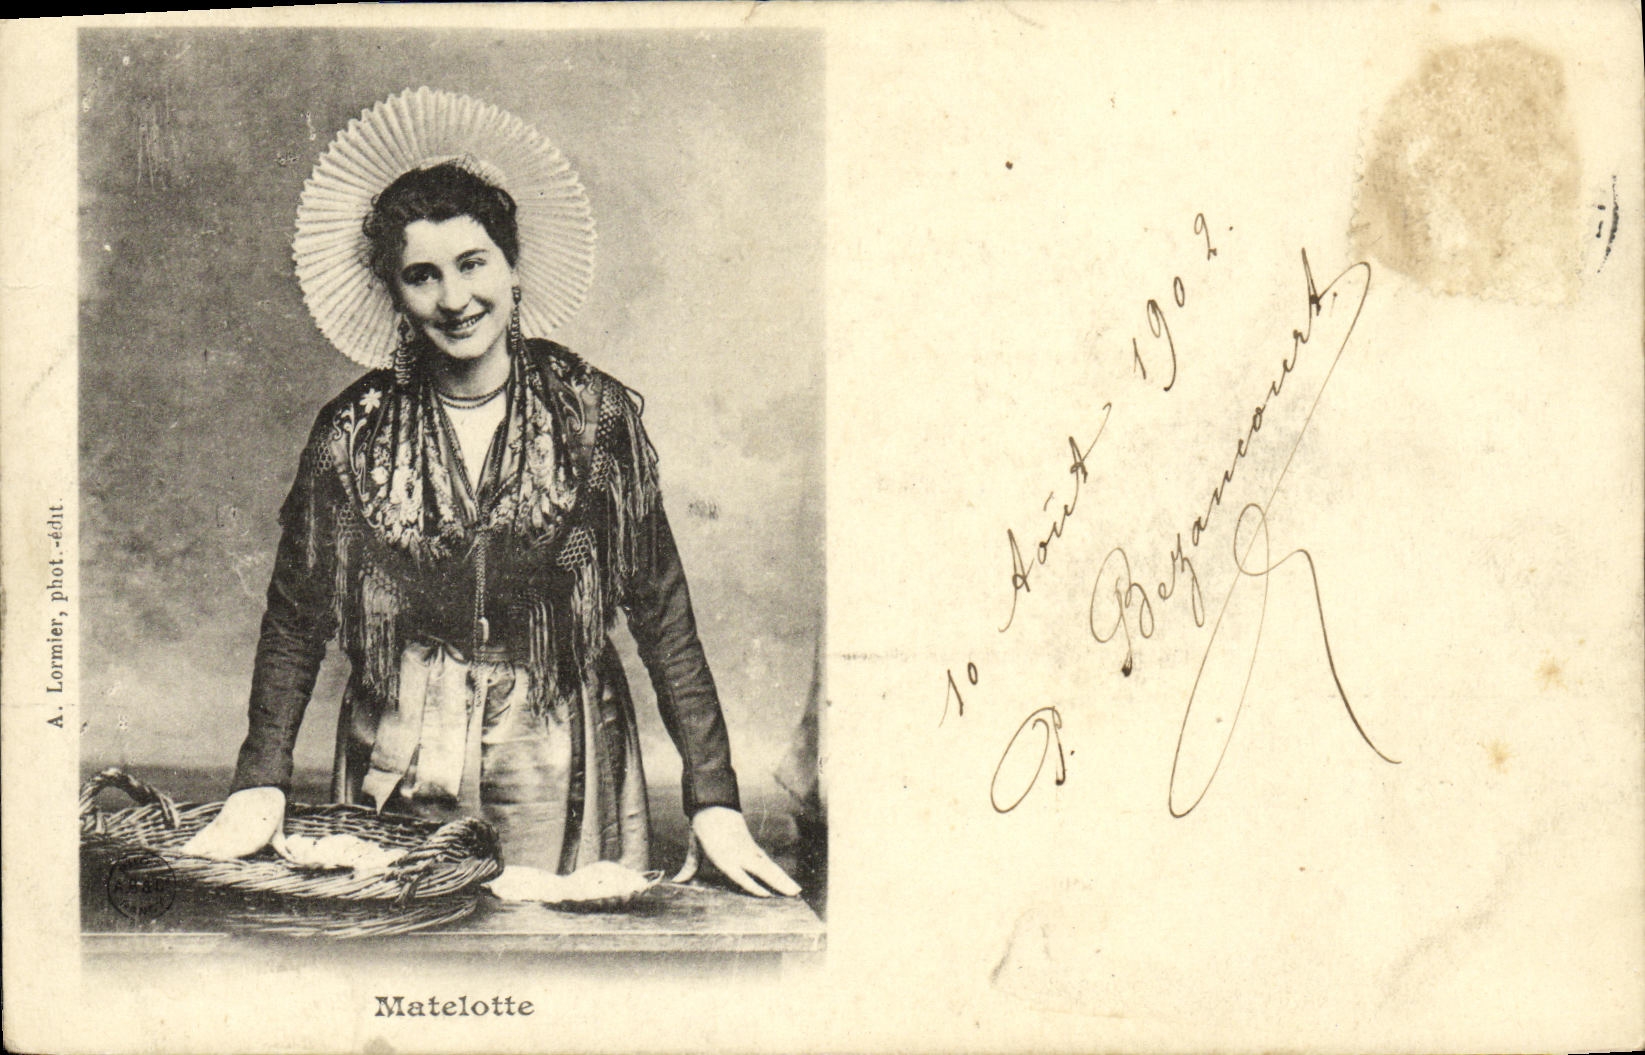 A. Lormier, phot.-édit.
Matelotte
10 Août 1902.
P. Bezancourt.
A.B & Co